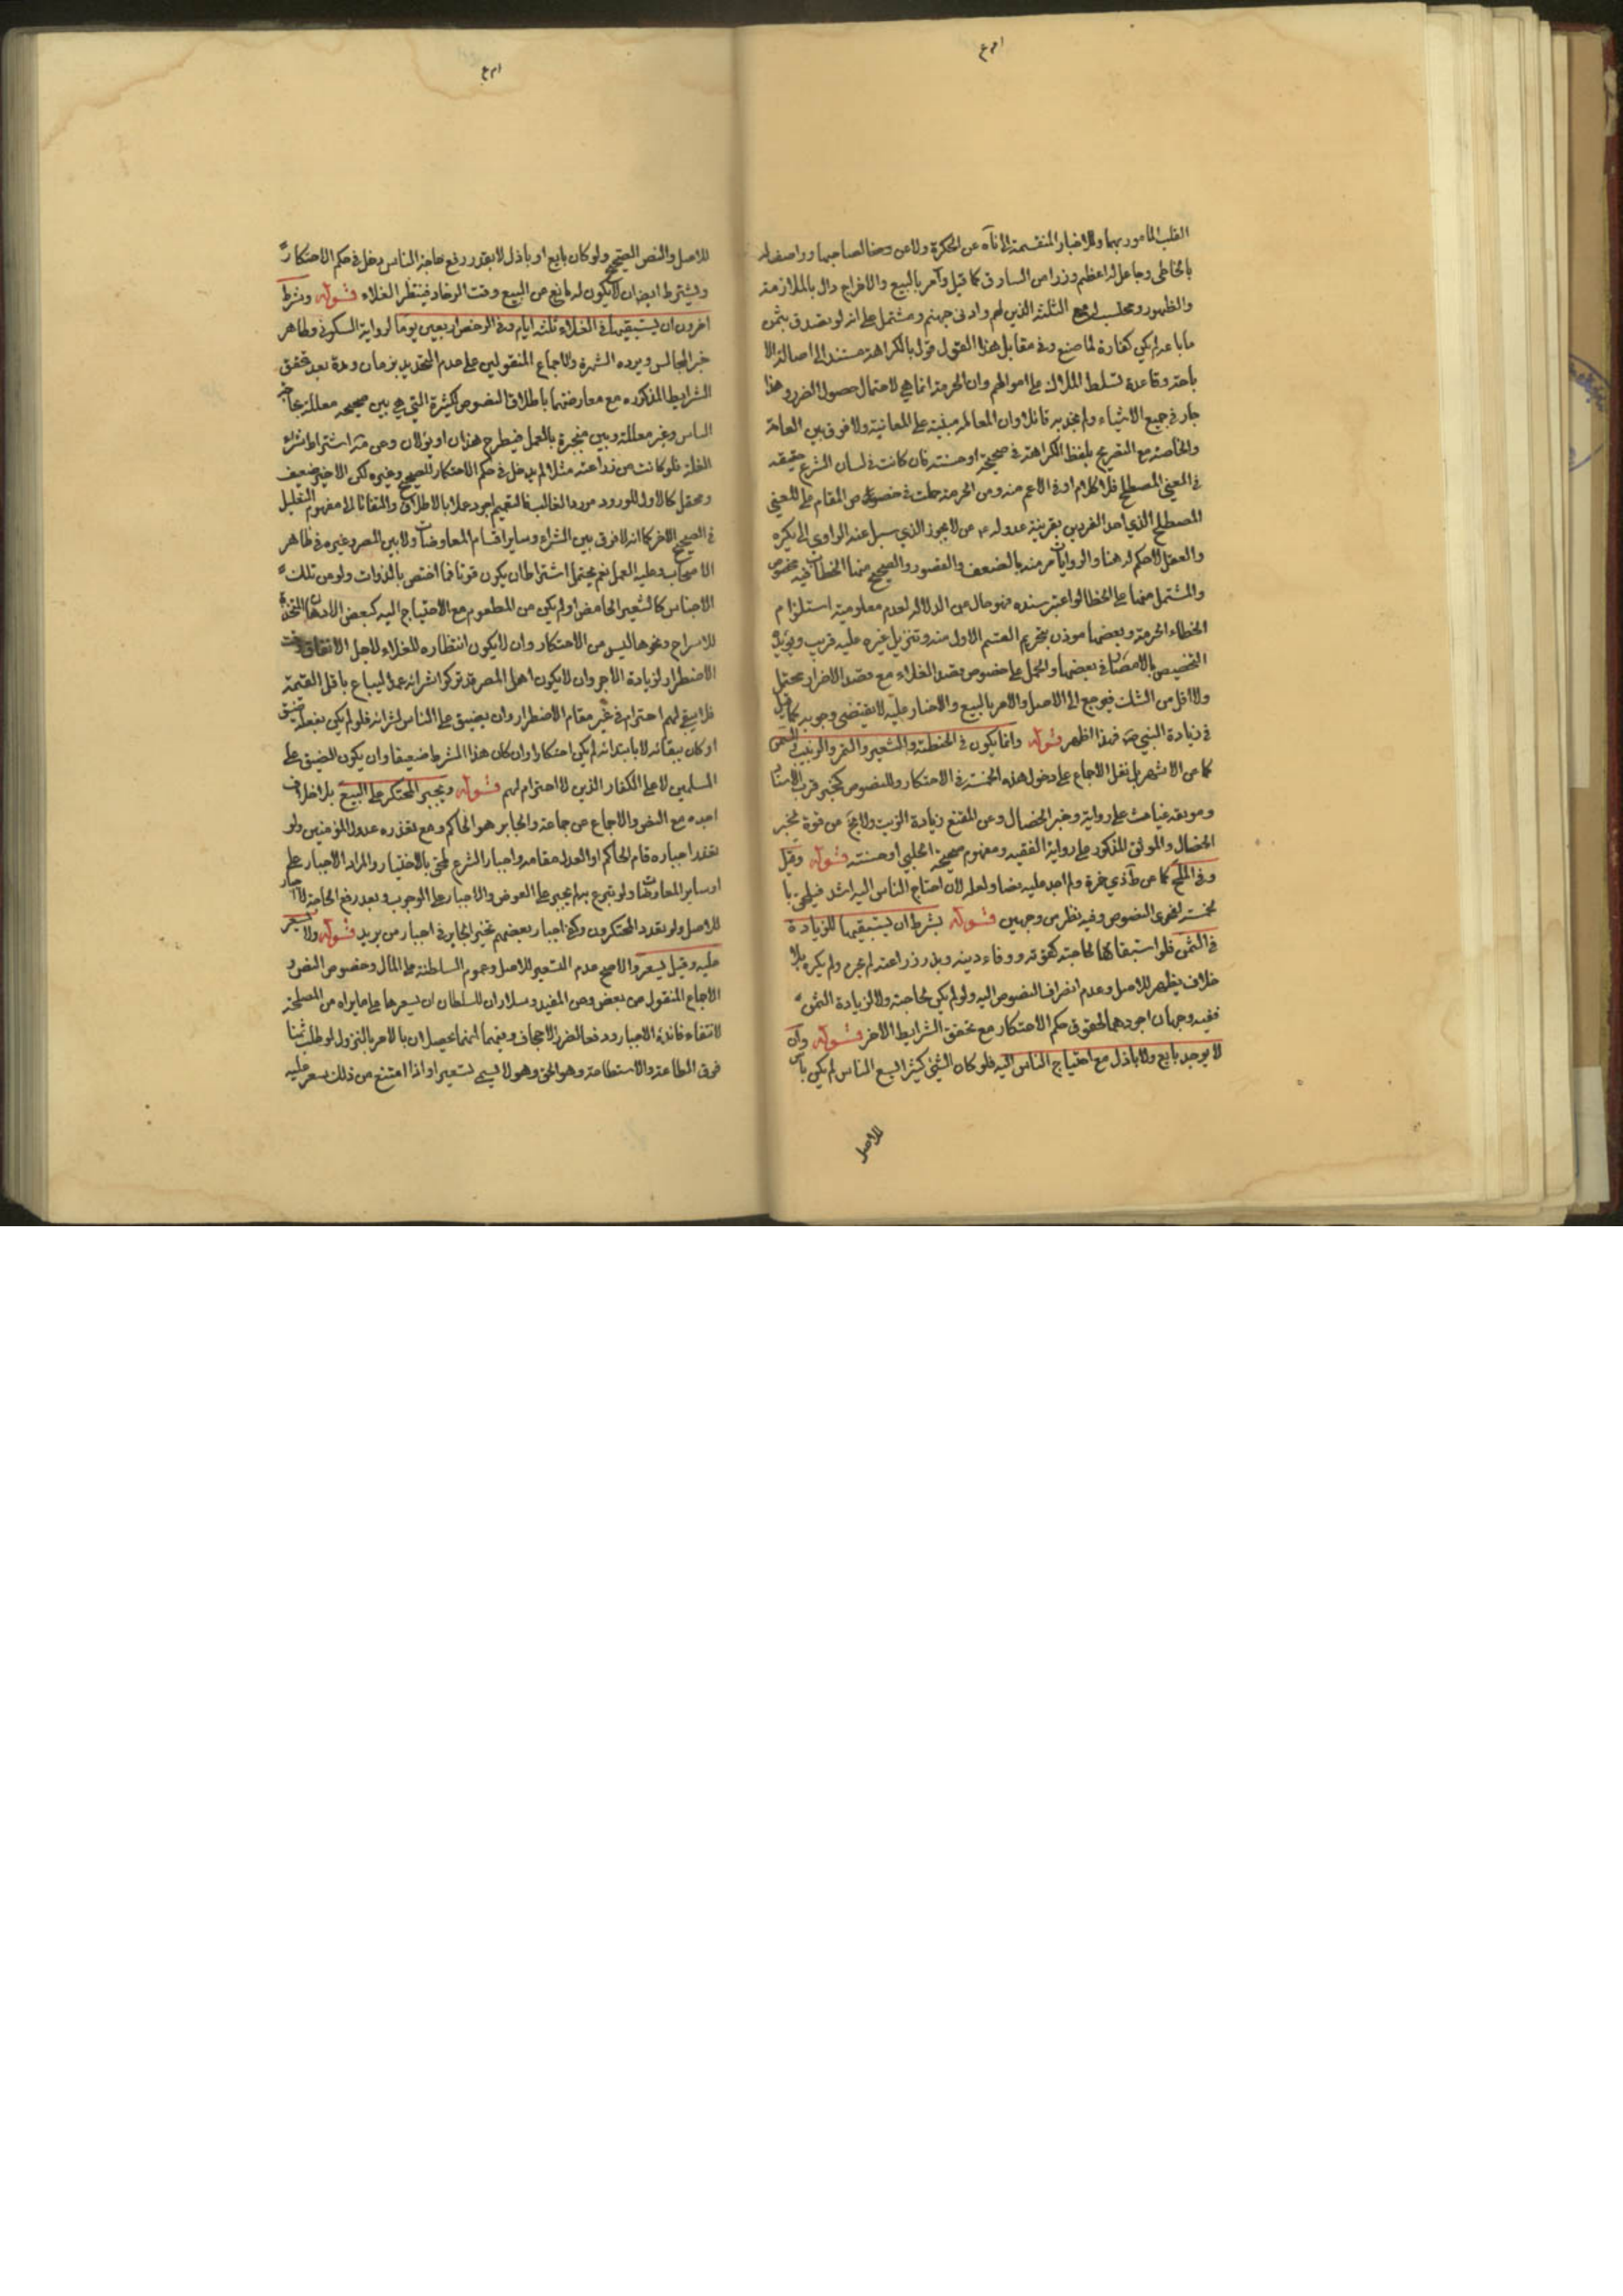 القلب المأمور بهما وللاخبار المنقسمة الى ناه عن الحكرة ولاعن وضا لصاحبها وواصف له
بالخاطى وجاعل له اعظم وزرا من السارق كما قيل وآمر بالبيع والاخراج ودال بالملازمة
والظهور ومحلب له مع الثلثة الذين لهم وادى جهنم ومشتمل على انه لو تصدق بثمن
ما باعه لم يكن كفارة لما صنع وفي مقابل هذا القول قول بالكراهة مستندا الى اصالة الا
باحة وقاعدة تسلط الملاك على اموالهم وان الحرمة انما هي لاحتمال حصول الضرر وهذا
جار في جميع الاشياء ولم نجد به قائلا وان المعالمه مبنية على المعاينة ولا فرق بين العامة
والخاصة مع التصريح بلفظ الكراهة في صحيحة او حسنة فان كانت في لسان الشرع حقيقة
في المعنى المصطلح فلا كلام او في الاعم منه ومن الحرمة حملت في خصوص المقام على المعنى
المصطلح الذي احد الفردين بقرينة عدوله ع من لا يجوز الذي سئل عنه الراوي الى يكره
والعقل لا حكم له هنا والروايات مرمية بالضعف والقصور والصحيح منها الخطاب فيه مخصوص
والمشتمل منها على الخطا لو اعتبر سنده فهو خال من الدلالة لعدم معلومية استلزام
الخطاء الحرمة وبعضها موذن بتحريم القسم الاول منه وتنزيل غيره عليه قريب ويؤيد
التخصيص بالامصار في بعضها والحمل على خصوص قصد الغلاء مع قصد الاضرار محتمل
ولا اقل من الشك فيرجع الى الاصل والامر بالبيع والاخبار عليه لا يقتضى وجوبه كما قيل
في زيادة النبي ص فهذا اظهر قوله وانما يكون في الحنطة والشعير والتمر والزبيب والسمن
كما عن الاشهر بل نقل الاجماع على دخول هذه الخمسة في الاحتكار وللنصوص كخبر قرب الاسناد
وموثقة غياث على رواية وخبر الخصال وعن المقنع زيادة الزيت ولا يخ من قوة لخبر
الخصال والموثق المذكور على رواية الفقيه ومفهوم صحيحة الحلبي او حسنته قوله وقيل
وفي الملح كما عن ط وذي حمزة ولم اجد عليه نصا ولعله لان احتياج الناس اليه اشد فيلحق با
لخمسة لفحوى النصوص وفيه نظر من وجهين قوله بشرط ان يستبقيها للزيادة
في الثمن فلو استبقاها لحاجته كقوته ووفاء دينه وبذر زراعته لم يحرم ولم يكره بلا
خلاف يظهر للاصل وعدم انصراف النصوص اليه ولو لم يكن لحاجته ولا لزيادة الثمن
ففيه وجهان اجودهما لحقوق حكم الاحتكار مع تحقق الشرايط الاخر قوله وان
لا يوجد بايع ولا باذل مع احتياج الناس اليه فلو كان الشئ كثير البيع الناس لم يكن باس
للاصل
للاصل والنص الصحيح ولو كان بايع او باذل لا يقدر رفع حاجة الناس دخل في حكم الاحتكار
ويشترط ايضا ان لا يكون له مانع من البيع وقت الرخاء فينتظر الغلاء قوله وشرط
اخرون ان يستبقيها في الغلاء ثلثة ايام وفي الرخص اربعين يوما لرواية السكوني وظاهر
خبر المجالس ويرده الشهرة والاجماع المنقولين على عدم التحديد بزمان ومدة بعد تحقق
الشرايط المذكوره مع معارضتها باطلاق النصوص الكثيرة التي هي بين صحيحه معللة بحاجة
الناس وغير معللة وبين منجبرة بالعمل فيطرح هذان او يؤلان وعن مة اشتراط شراء
الغلة فلو كانت من زراعته مثلا لم يدخل في حكم الاحتكار للصحيح وغيره لكن الاخير ضعيف
ومحتمل كالاول للورود مورد الغالب فالتعميم اجود عملا بالاطلاق والتفاتا الى مفهوم التعليل
في الصحيح الاخر كما انه لا فرق بين الشراء وساير اقسام المعاوضات ولا بين المصر وغيره في ظاهر
الاصحاب وعليه العمل نعم يحتمل اشتراط ان يكون قوتا فما اختص بالدواب ولو من تلك
الاجناس كالشعير الحامض او لم يكن من المطعوم مع الاحتياج اليه كبعض الادهان المتخذة
للاسراج ونحوها ليس من الاحتكار وان لا يكون انتظاره للغلاء لاجل الانفاق وقت
الاضطرار لزيادة الاجر وان لا يكون اهل المصر قد تركوا شرائه عمدا ليباع باقل القيمة
فلا يبقى لهم احترام في غير مقام الاضطرار وان يضيق على الناس بشرائه فلو لم يكن بفعله ضيق
او كان ببقائه لا بابتدائه لم يكن احتكارا وان كان هذا الشرط ضعيفا وان يكون الضيق على
المسلمين لا على الكفار الذين لا احترام لهم قوله ويجبر المحتكر على البيع بلا خلاف
اجده مع النص والاجماع عن جماعة والجابر هو الحاكم ومع تعذره عدول المؤمنين ولو
تعقد اجباره قام الحاكم او العدل مقامه واجبار الشرع ملحق بالاختيار والمراد الاجبار على
او ساير المعاوضات ولو تبرع بها لم يجبر على العوض والاجبار على الوجوب وبعد رفع الحاجة لا اجبار
للاصل ولو تعدد المحتكرون وكفى اجبار بعضهم تخير الجابر في اجبار من يريد قوله ولا يسعر
عليه وقيل يسعر والاصح عدم التسعير للاصل وعموم السلطنة على المال وخصوص النص و
الاجماع المنقول عن بعض وعن المفيد وسلار ان للسلطان ان يسعرها على ما يراه من المصلحة
لانتفاء فائدة الاجبار ودفعا لضرر الاجحاف وفيهما انهما يحصلان بالامر بالنزول لو طلب ثمنا
فوق الطاعة والاستطاعة وهو الحق وهو لا يسمى تسعيرا واذا امتنع من ذلك سعر عليه